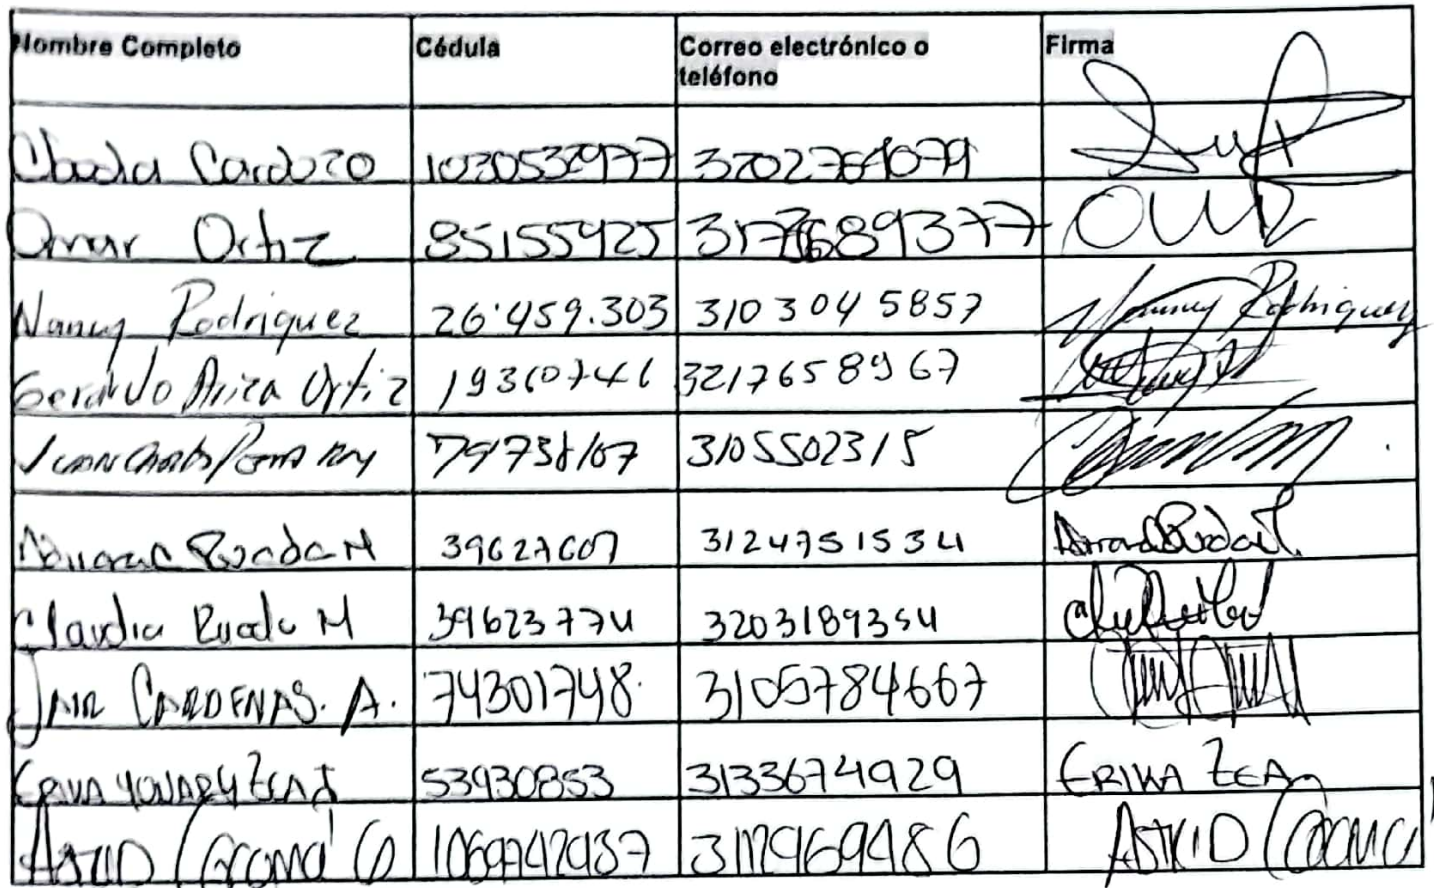 Nombre Completo Cédula Correo electrónico o teléfono Firma
Claudia Cardozo 1030532977 3202764079
Omar Ortiz 85155925 689377
Nancy Rodriguez 26'459.303 310 304 5857 Nancy Rodriguez
Gerardo Ariza Ortiz 19360746 3217658967
Juan Carlos 3105502315
Rueda M 39627607 3124751534
Claudia Rueda M 39623774 3203189354
JAIR CARDENAS. A. 74301748. 3105784667
ERIKA YOVARY ZEA 53930853 3133674929 ERIKA ZEA
ASTRID 1069742937 3112969486 ASTRID